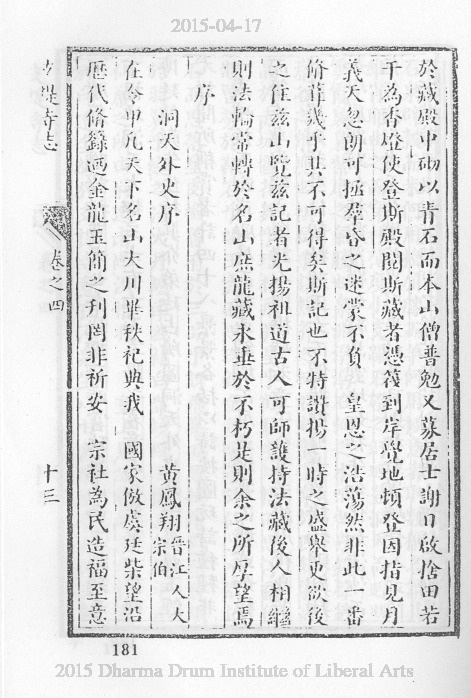 2015-04-17
於藏殿中砌以青石而本山僧普勉又募居士謝日啟捨田若
干為香燈使登斯殿閱斯藏者憑筏到岸覺地頓登因指見月
義天忽朗可拯羣昏之迷蒙不負 皇恩之浩蕩然非此一番
脩葺幾乎其不可得矣斯記也不特讚揚一時之盛舉更欲後
之住茲山覽茲記者光揚祖道古人可師護持法藏後人相繼
則法輪常轉於名山庶龍藏永垂於不朽是則余之所厚望焉
序
洞天外史序 黃鳳翔 晉江人大宗伯
在令甲凡天下名山大川畢秩祀典我 國家倣虞廷柴望沿
歷代脩籙迺金龍玉簡之刋罔非祈安 宗社為民造福至意
寺志 卷之四 十三
181
2015 Dharma Drum Institute of Liberal Arts